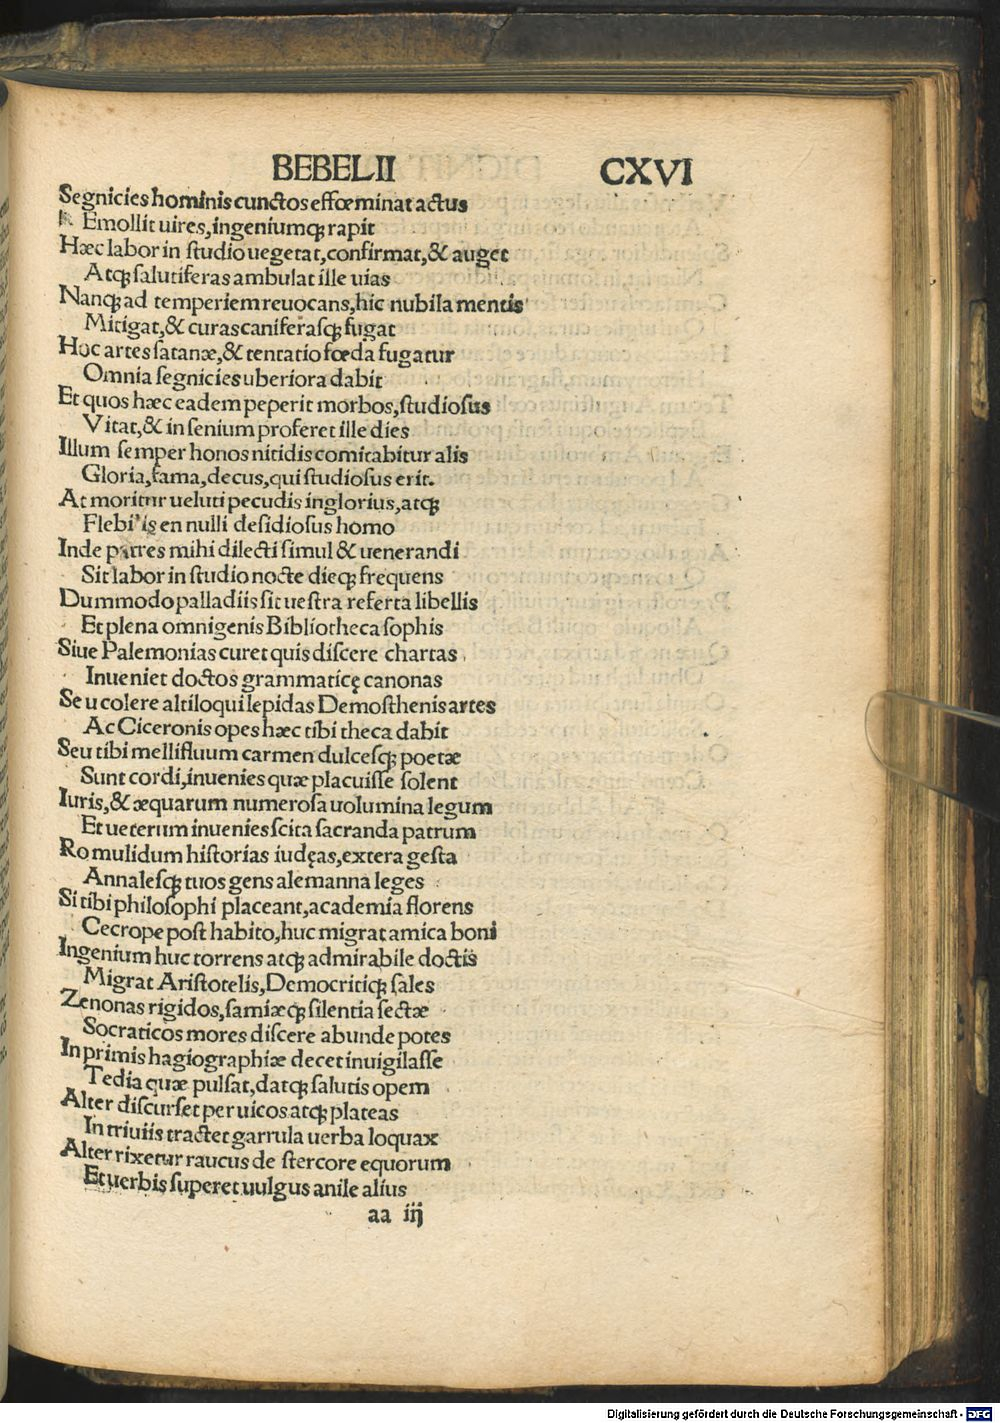 BEBELII CXVI
Segnicies hominis cunctos effœminat actus
Emollit uires, ingeniumqꝫ rapit
Hæc labor in studio uegetat, confirmat, & auget
Atqꝫ salutiferas ambulat ille uias
Nanqꝫ ad temperiem reuocans, hic nubila mentis
Mitigat, & curas caniferasqꝫ fugat
Hoc artes satanæ, & tentatio fœda fugatur
Omnia segnicies uberiora dabit
Et quos hæc eadem peperit morbos, studiosus
Vitat, & in senium proferet ille dies
Illum semper honos nitidis comitabitur alis
Gloria, fama, decus, qui studiosus erit.
At moritur ueluti pecudis inglorius, atqꝫ
Flebilis en nulli desidiosus homo
Inde patres mihi dilecti simul & uenerandi
Sit labor in studio nocte dieqꝫ frequens
Dummodo palladiis sit uestra referta libellis
Et plena omnigenis Bibliotheca sophis
Siue Palemonias curet quis discere chartas
Inueniet doctos grammaticę canonas
Seu colere altiloqui lepidas Demosthenis artes
Ac Ciceronis opes hæc tibi theca dabit
Seu tibi mellifluum carmen dulcesqꝫ poetæ
Sunt cordi, inuenies quæ placuisse solent
Iuris, & æquarum numerosa uolumina legum
Et ueterum inuenies scita sacranda patrum
Romulidum historias iudęas, extera gesta
Annalesqꝫ tuos gens alemanna leges
Si tibi philosophi placeant, academia florens
Cecrope post habito, huc migrat amica boni
Ingenium huc torrens atqꝫ admirabile doctis
Migrat Aristotelis, Democritiqꝫ sales
Zenonas rigidos, samiæqꝫ silentia sectæ
Socraticos mores discere abunde potes
Inprimis hagiographiæ decet inuigilasse
Tedia quæ pulsat, datqꝫ salutis opem
Alter discurset per uicos atqꝫ plateas
In triuiis tractet garrula uerba loquax
Alter rixetur raucus de stercore equorum
Et uerbis superet uulgus anile alius
aa iij
Digitalisierung gefördert durch die Deutsche Forschungsgemeinschaft - DFG